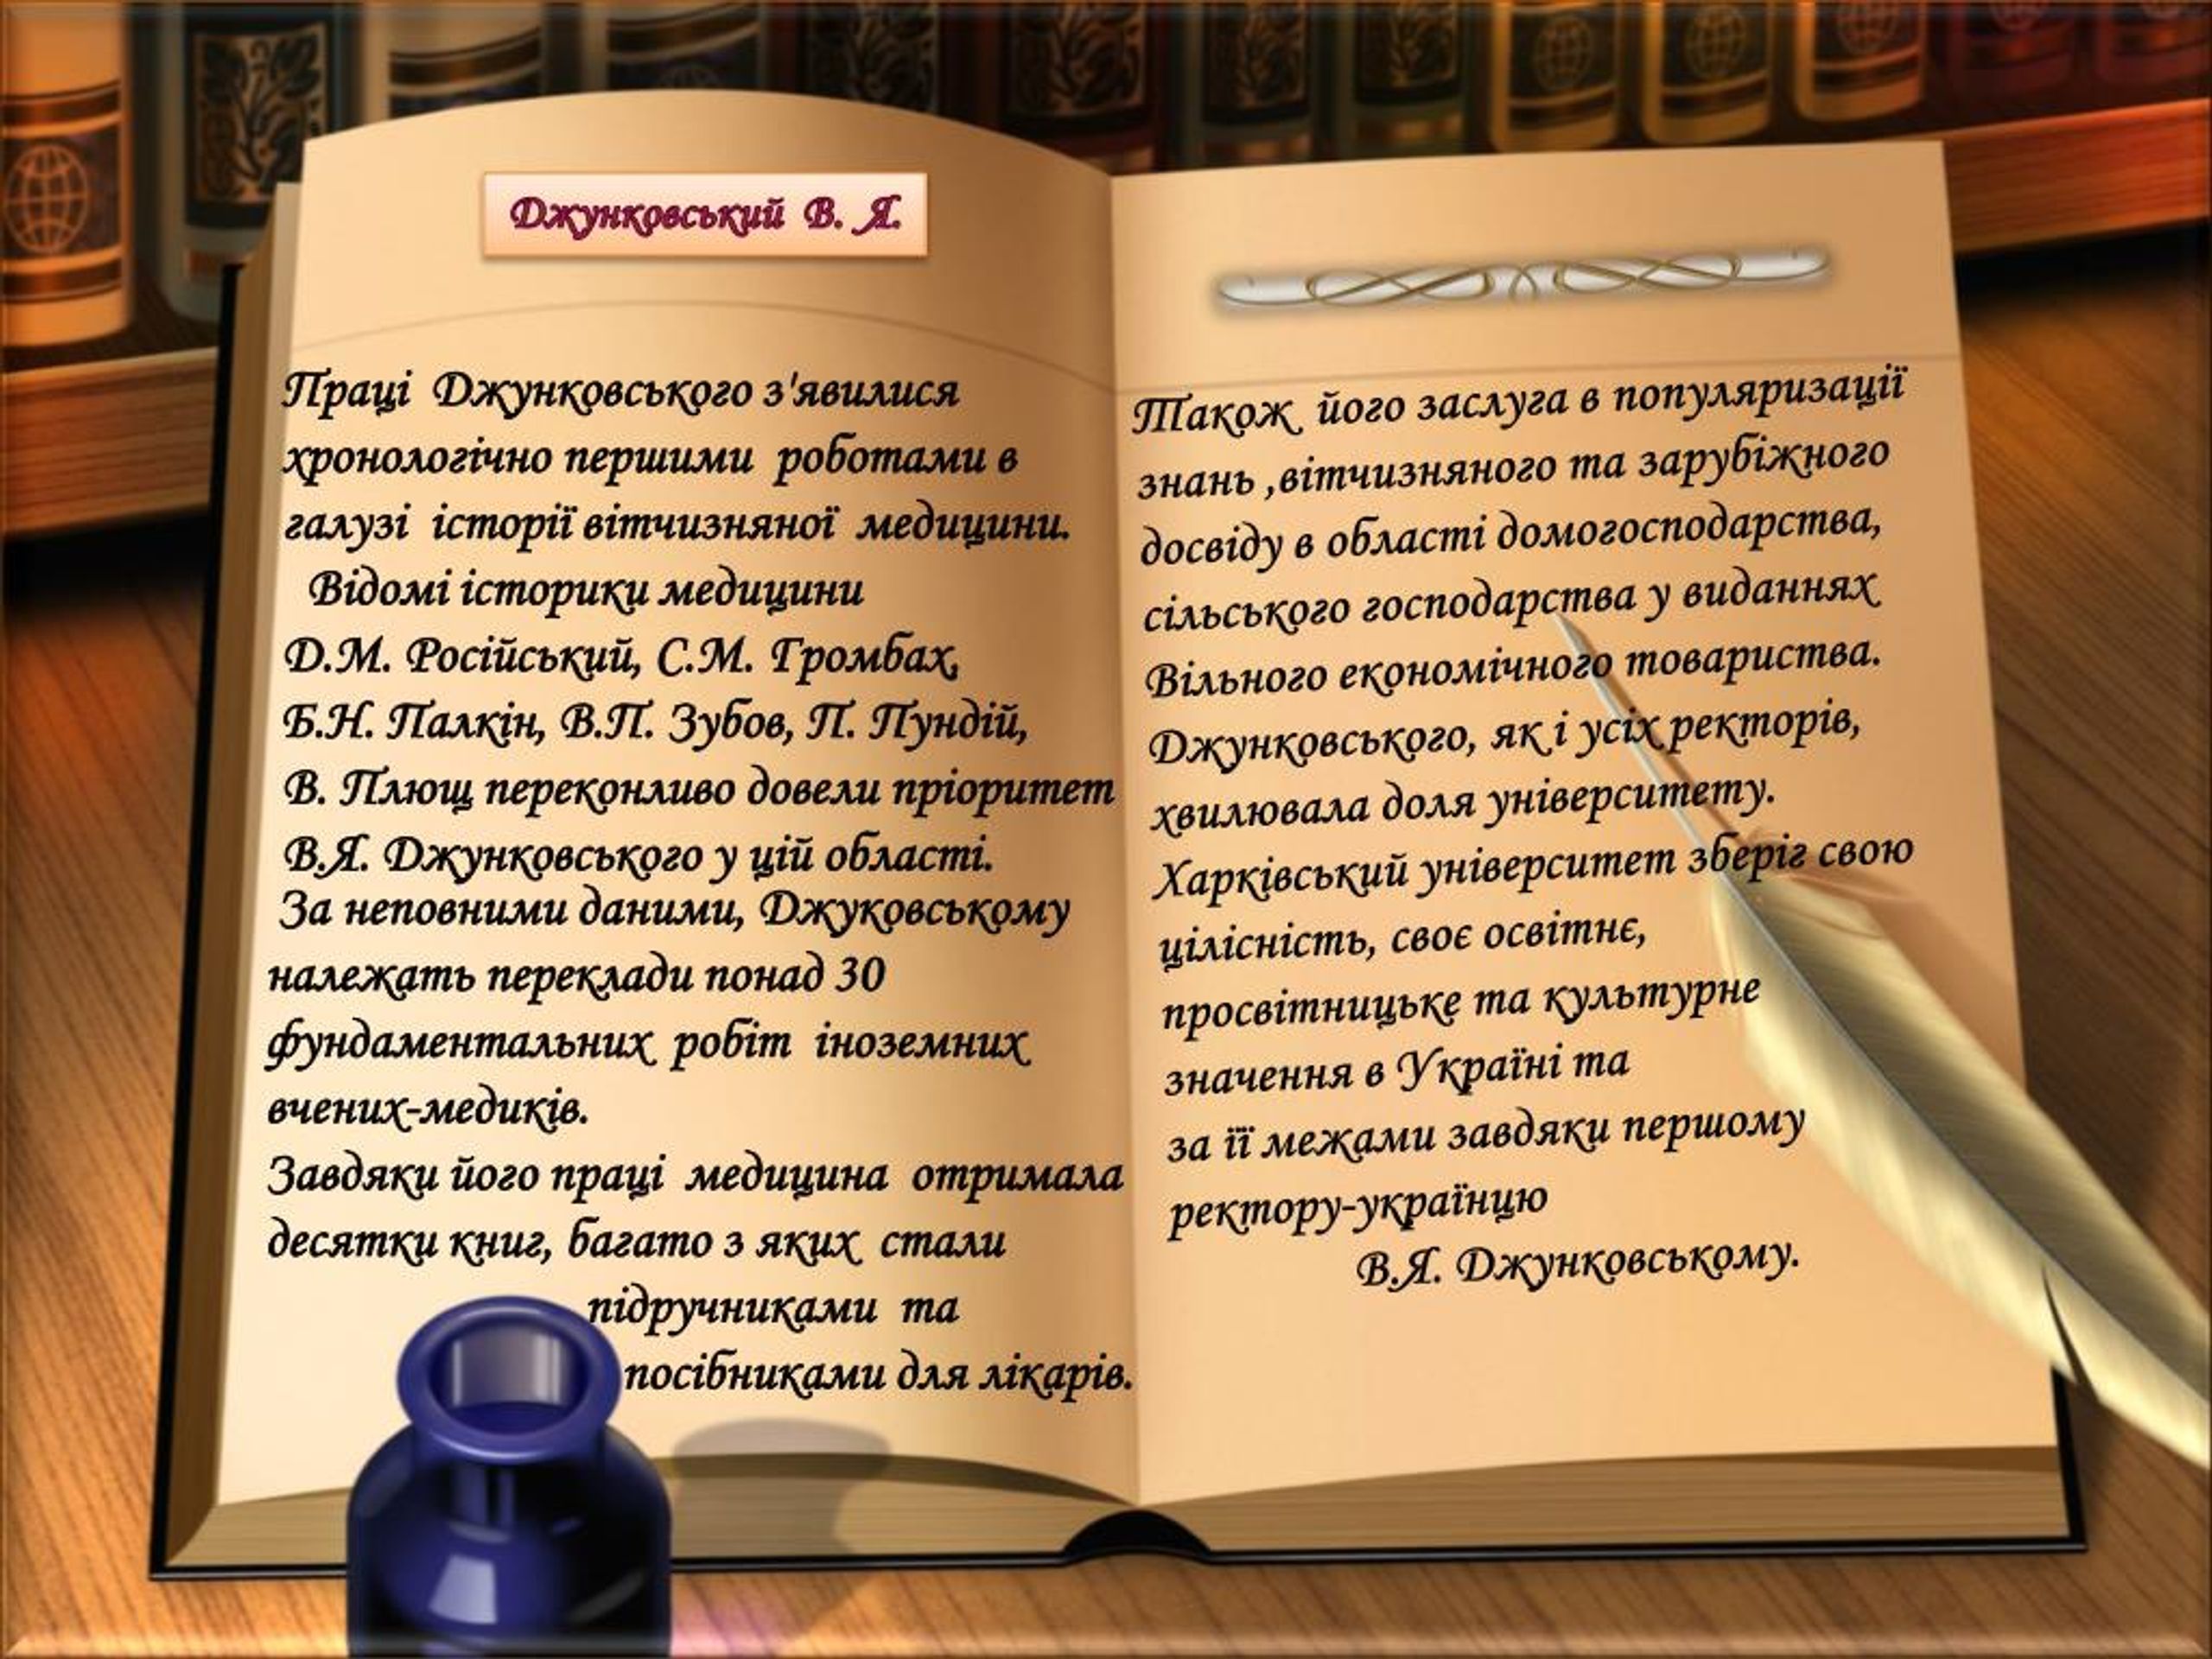 Джунковський В. Я.
Праці Джунковського з'явилися
хронологічно першими роботами в
галузі історії вітчизняної медицини.
Відомі історики медицини
Д.М. Російський, С.М. Громбах,
Б.Н. Палкін, В.П. Зубов, П. Пундій,
В. Плющ переконливо довели пріоритет
В.Я. Джунковського у цій області.
За неповними даними, Джуковському
належать переклади понад 30
фундаментальних робіт іноземних
вчених-медиків.
Завдяки його праці медицина отримала
десятки книг, багато з яких стали
підручниками та
посібниками для лікарів.
Також його заслуга в популяризації
знань ,вітчизняного та зарубіжного
досвіду в області домогосподарства,
сільського господарства у виданнях
Вільного економічного товариства.
Джунковського, як і усіх ректорів,
хвилювала доля університету.
Харківський університет зберіг свою
цілісність, своє освітнє,
просвітницьке та культурне
значення в Україні та
за її межами завдяки першому
ректору-українцю
В.Я. Джунковському.